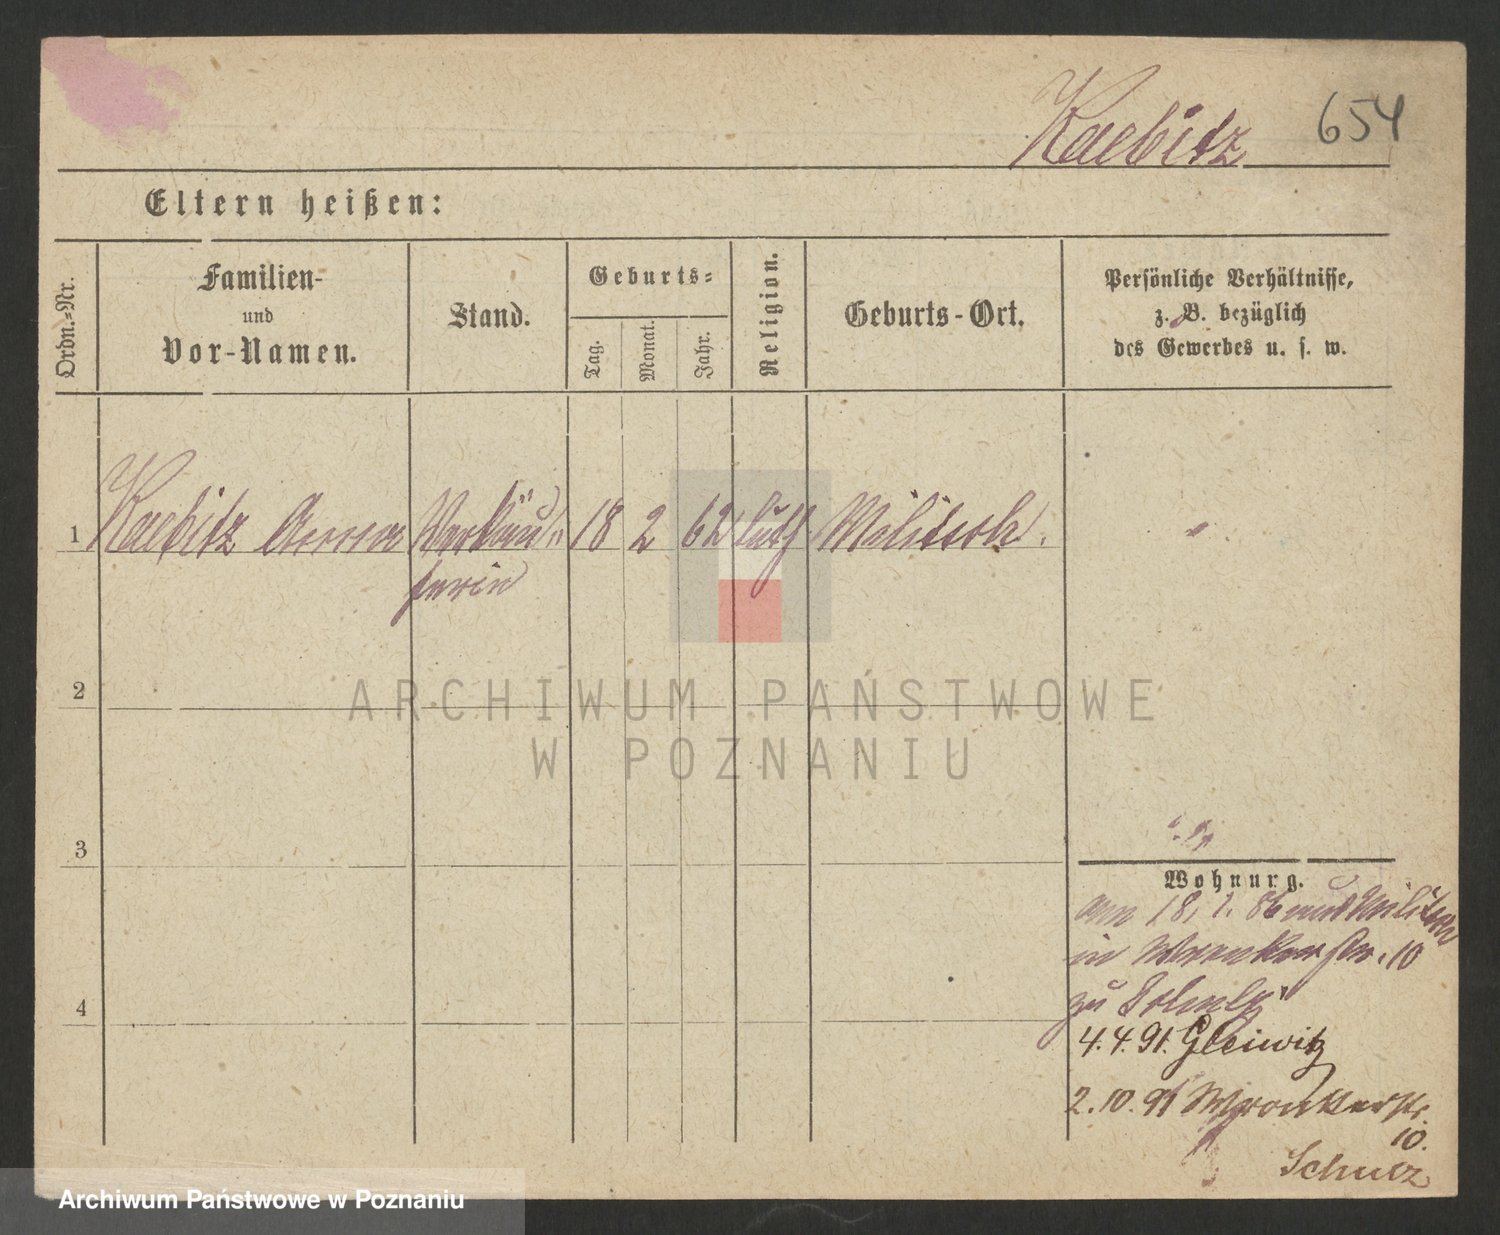 Kaebitz 654
Eltern heißen:
Ordn.-Nr.
Familien-
und
Vor-Namen.
Stand.
Geburts-
Tag.
Monat.
Jahr.
Religion.
Geburts-Ort.
Persönliche Verhältnisse,
z. B. bezüglich
des Gewerbes u. s. w.
1 Kaebitz Anna Verkäu- 18 2 62 luth Militsch.
ferin
2
ARCHIWUM PAŃSTWOWE
W POZNANIU
3
Wohnung.
am 18. 1. 86 aus Militsch
in Wronkerstr. 10
zu Schulz
4
4.4.91. Gleiwitz
2.10.91 Wronkerstr.
10.
Schulz
Archiwum Państwowe w Poznaniu